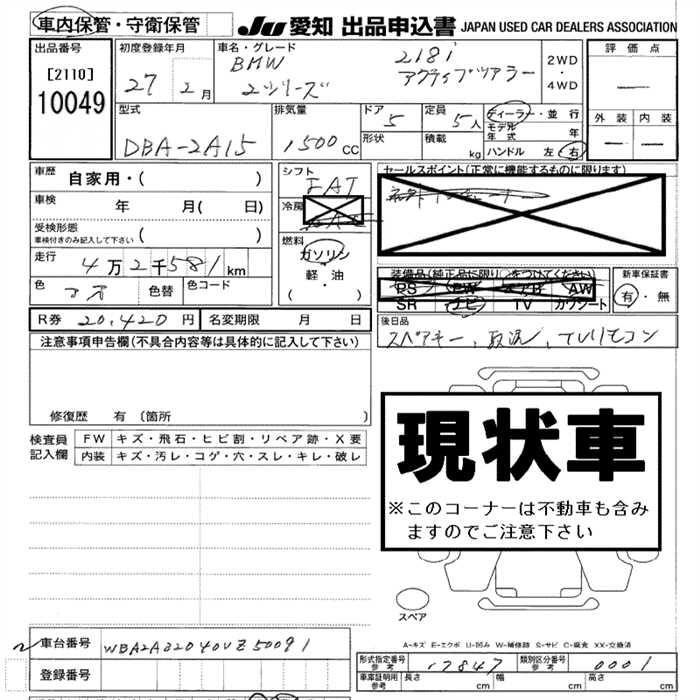 車内保管・守衛保管 JU 愛知 出品申込書 JAPAN USED CAR DEALERS ASSOCIATION
出品番号 [2110] 10049
初度登録年月 27 年 2月
車名・グレード BMW 2シリーズ 218i アクティブツアラー
2WD ・ 4WD
評価点 —
外装 — 内装 —
型式 DBA-2A15
排気量 1500 CC
ドア 5 形状
定員 5人 積載 kg
ディーラー・並行
モデル年式 年
ハンドル 左 右
車歴 自家用・( )
車検 年 月( 日)
受検形態 車検付きのみ記入して下さい ( )
走行 4万2千581km
色 クロ 色替 色コード
シフト FAT
冷房
燃料 ガソリン 軽・油 ( ・ )
セールスポイント(正常に機能するものに限ります)
装備品(純正品に限り○をつけてください)
PS PW エアB AW
SR ナビ TV カワシート
新車保証書 有・無
R券 20,420円 名変期限 月 日
後日品 スペアキー、取説、TVリモコン
注意事項申告欄(不具合内容等は具体的に記入して下さい)
修復歴 有 (箇所 )
検査員記入欄
FW キズ・飛石・ヒビ割・リペア跡・X要
内装 キズ・汚レ・コゲ・穴・スレ・キレ・破レ
現状車
※このコーナーは不動車も含み
ますのでご注意下さい
スペア
A-キズ E-エクボ U-凹み W-補修跡 S-サビ C-腐食 XX-交換済
車台番号 WBA2A32040VZ50091
登録番号
形式指定番号 参考 17847 類別区分番号 参考 0001
車庫証明用 参考 長さ cm 幅 cm 高さ cm